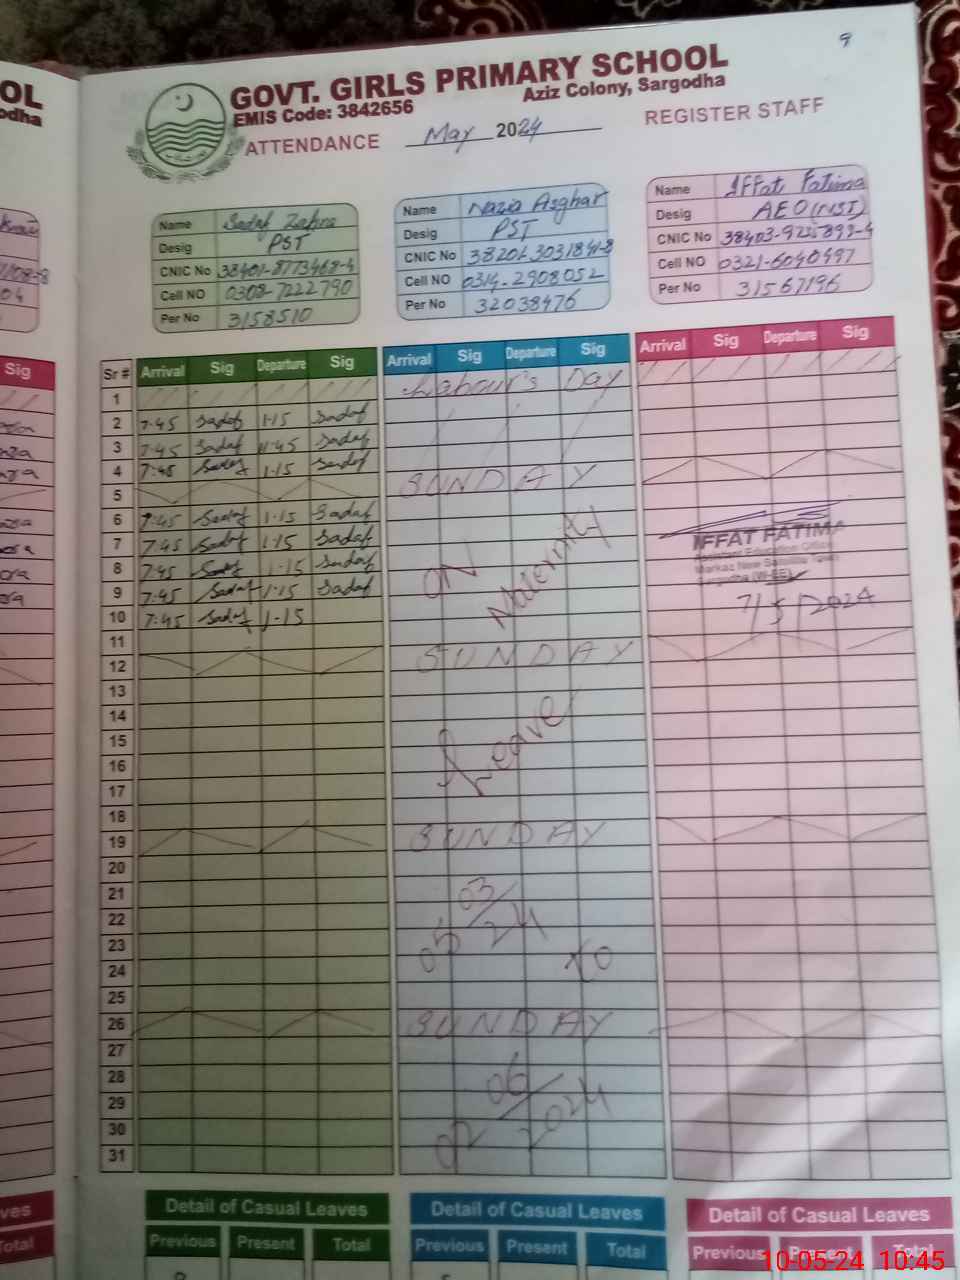 9
OL
GOVT. GIRLS PRIMARY SCHOOL
odha
EMIS Code: 3842656
Aziz Colony, Sargodha
ATTENDANCE May 2024 REGISTER STAFF
Name Sadaf Zahra
Desig PST
CNIC No 38401-8773468-4
Cell NO 0308-7222790
Per No 3158510
Name Nazia Asghar
Desig PST
CNIC No 38201-3031841-8
Cell NO 0314-2908052
Per No 32038476
Name Iffat Fatima
Desig AEO (NST)
CNIC No
Cell NO 0321-6040497
Per No 31567196
Sig
Sr # Arrival Sig Departure Sig Arrival Sig Departure Sig Arrival Sig Departure Sig
1 Labour's Day
2 7:45 Sadaf 1-15 Sadaf
3 7:45 Sadaf 11:45 Sadaf
4 7:45 Sadaf 1-15 Sadaf
5 SUNDAY
6 7:45 Sadaf 1-15 Sadaf
7 7:45 Sadaf 1-15 Sadaf
8 7:45 Sadaf 1-15 Sadaf
9 7:45 Sadaf 1-15 Sadaf
10 7:45 Sadaf 1-15
11
12 SUNDAY
13
14
15
16
17
18
19 SUNDAY
20
21
22
23
24
25
26 SUNDAY
27
28
29
30
31
ON Maternity
Leave
05/03/24 To
02/06/2024
IFFAT FATIMA
Assistant Education Officer
Sargodha (W-EE)
7/5/2024
ves
Total
Detail of Casual Leaves
Previous Present Total
Detail of Casual Leaves
Previous Present Total
Detail of Casual Leaves
Previous Present Total
10-05-24 10:45